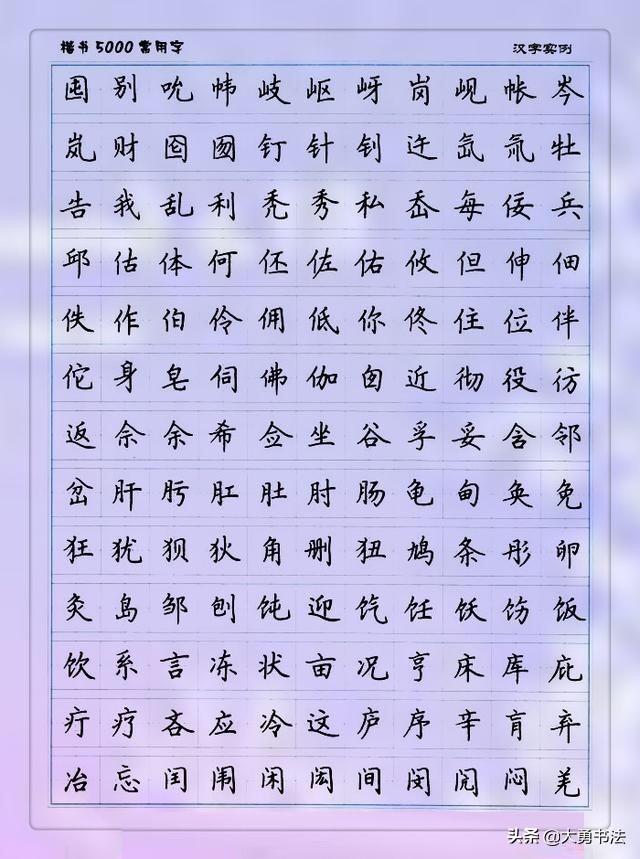 楷书5000常用字 汉字实例
囤别吮帏岐岖岈岗岘帐岑
岚财囵囫钉针钊迕氙氚牡
告我乱利秃秀私岙每佞兵
邱估体何伾佐佑攸但伸佃
佚作伯伶佣低你佟住位伴
佗身皂伺佛伽囱近彻役彷
返佘余希佥坐谷孚妥含邻
岔肝肟肛肚肘肠龟甸奂免
狂犹狈狄角删狃鸠条彤卵
灸岛邹刨饨迎饩饪饫饬饭
饮系言冻状亩况亨床库庇
疔疗吝应冷这庐序辛肓弃
冶忘闰闱闲闳间闵闶闷羌
头条@大勇书法